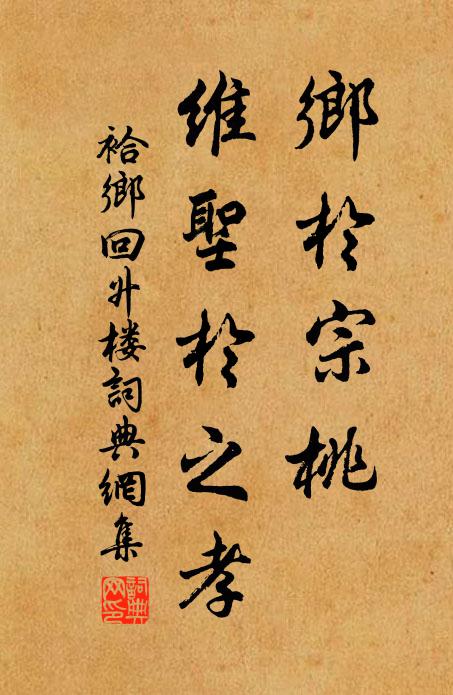 鄉於宗桃
維聖於之孝
祫鄉回廾楼詞典網集
詞典网印